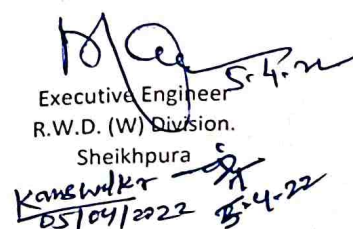 5.4.22
Executive Engineer
R.W.D. (W) Division.
Sheikhpura
05/04/2022 5-4-22